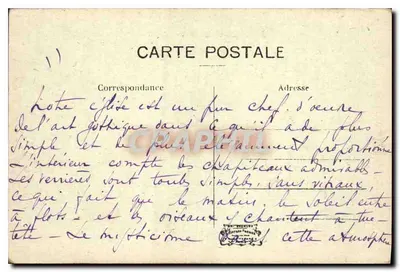 CARTE POSTALE
Correspondance Adresse
Notre église est un pur chef. d'oeuvre
de l'art gothique dans ce qu'il a de plus
simple, et le plus proportionné
L'intérieur compte des chapiteaux admirables -
Les verrières sont toutes simples, sans vitraux,
ce qui fait que le matin, le soleil entre
à flots - et les oiseaux y chantent à tue-
tête - Le mysticisme cette atmosphère